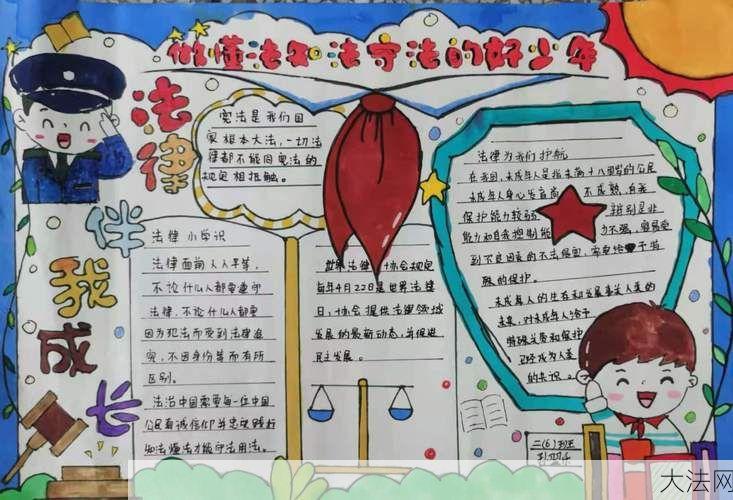 做懂法知法守法的好少年
法律伴我成长
宪法是我们国
家根本大法,一切法
律都不能同宪法的
规定相抵触。
法律小学识
法律面前人人平等,
不论什么人都要遵守
法律,不论什么人都要
因为犯法而受到法律追
究,不因身份等而有所
区别。
法治中国需要每一位中国
公民有诚信们户并忠实践行
知法懂法才能守法用法。
世界法律协会规定
每年4月22日是世界法律
日,协会提供法律领域
发展的最新动态,并促进
民主发展。
法律为我们护航
在我国,未成年人是指未满十八周岁的公民
未成年人身心发育尚不成熟,自我
保护能力较弱 辨别是非
能力和自我控制能力不强,容易受
到不良因素的不法侵害,需要给予特
殊的保护。
未成年人的生存和发展事关人类的
未来,对未成年人给予
特殊关爱和保护
已经成为人类
的共识。
二(6)班
大法网